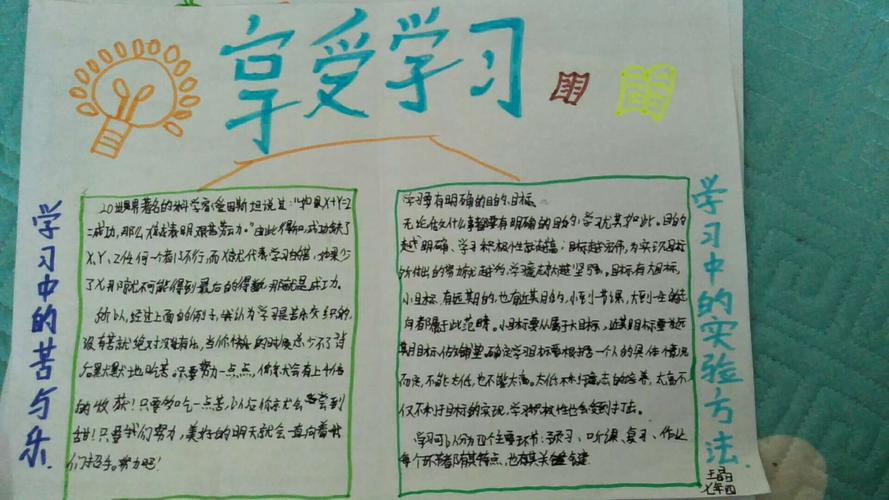 享受学习
学习中的苦与乐
20世界著名的科学家爱因斯坦说过:"如果X+Y=Z
=成功,那么X代表着艰苦劳动。"由此得知,成功缺了
X、Y、Z任何一者都不行,而X就代表学习的苦,如果少
了X那就不可能得到最后的得数,那就是成功。
所以,经过上面的例子,我认为学习是苦乐交织的,
没有苦就绝对没有乐,当你快乐的时候总少不了背
后默默地吃苦。只要努力一点点,你就会有上千倍
的收获!只要多吃一点苦,以后你就会尝到
甜!只要我们努力,美好的明天就会一直向着我
们招手。努力吧!
学习要有明确的目的、目标。
无论做什么事都要有明确的目的,学习尤其如此。目的
越明确、学习积极性就越高;目标越宏伟,为实现目标
所做出的努力就越为,学习意志就越坚强。目标有大目标,
小目标,有远期的,也有近期目的,小到一节课,大到一生的志
向都属于此范畴。小目标要从属于大目标,近期目标要为远
期目标做铺垫。确定学习目标要根据一个人的具体情况
而定,不能太低,也不能太高。太低不利于意志的培养,太高不
仅不利于目标的实现,学习积极性也会受到打击。
学习可以分为四个主要环节:预习、听课、复习、作业
每个环节都有其特点,也有其关键
学习中的实验方法